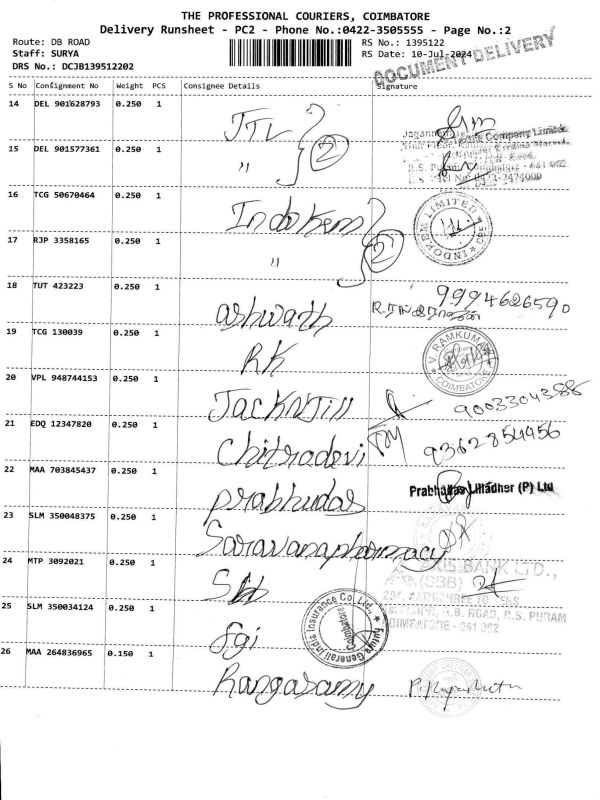 THE PROFESSIONAL COURIERS, COIMBATORE
Delivery Runsheet - PC2 - Phone No.:0422-3505555 - Page No.:2
Route: DB ROAD RS No.: 1395122
Staff: SURYA RS Date: 10-Jul-2024
DRS No.: DCJB139512202
DOCUMENT DELIVERY
S No Consignment No Weight PCS Consignee Details Signature
14 DEL 901628793 0.250 1 JTL
15 DEL 901577361 0.250 1 " 2
16 TCG 50670464 0.250 1 Indokem
INDOKEM LIMITED CBE
17 RJP 3358165 0.250 1 " 2
18 TUT 423223 0.250 1 ashwath 9994626590
19 TCG 130039 0.250 1 RK
V. RAMKUMAR COIMBATORE
20 VPL 948744153 0.250 1 JackNJill 9003304388
21 EDQ 12347820 0.250 1 Chitradevi 9362854456
22 MAA 703845437 0.250 1 prabhudas
Prabhudas Liladher (P) Ltd
23 SLM 350048375 0.250 1 Saravanapharmacy
24 MTP 3092021 0.250 1
AXIS BANK LTD.,
(SBB)
R.B. ROAD, R.S. PURAM
COIMBATORE - 641 002
25 SLM 350034124 0.250 1 fgi
Future Generali India Insurance Co. Ltd.,
26 MAA 264836965 0.150 1 Rangasamy